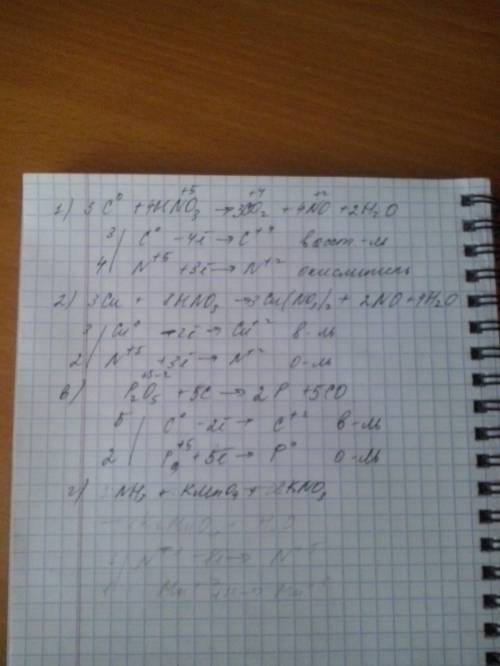 1) 3C⁰ + 4HN⁺⁵O₃ → 3C⁺⁴O₂ + 4N⁺²O + 2H₂O
3 | C⁰ - 4ē → C⁺⁴ восст-ль
4 | N⁺⁵ + 3ē → N⁺² окислитель
2) 3Cu + 8HNO₃ → 3Cu(NO₃)₂ + 2NO + 4H₂O
3 | Cu⁰ - 2ē → Cu⁺² в-ль
2 | N⁺⁵ + 3ē → N⁺² о-ль
в) P₂⁺⁵O₅⁻² + 5C → 2P + 5CO
5 | C⁰ - 2ē → C⁺² в-ль
2 | P⁺⁵ + 5ē → P⁰ о-ль
г) NH₃ + KMnO₄ + KNO₃